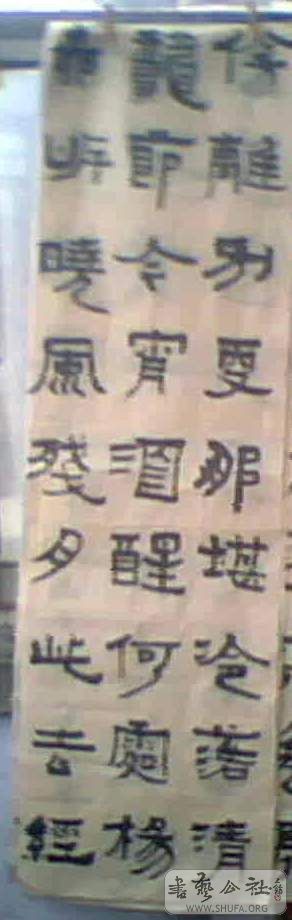 離別更那堪冷落清
節今宵酒醒何處楊
岸曉風殘月此去經
書藝公社
WWW.SHUFA.ORG